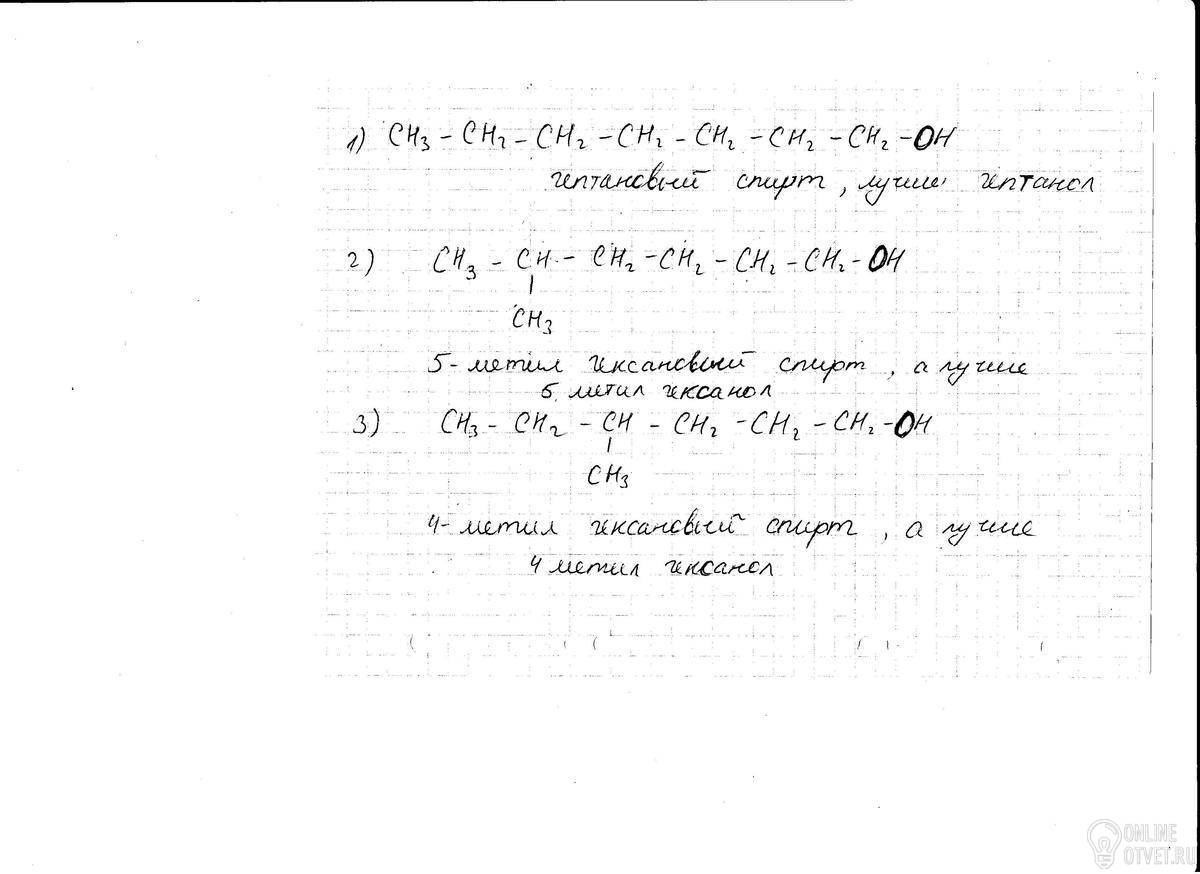 1) CH3 - CH2 - CH2 - CH2 - CH2 - CH2 - CH2 - OH
гептановый спирт, лучше гептанол
2) CH3 - CH - CH2 - CH2 - CH2 - CH2 - OH
|
CH3
5-метил гексановый спирт, а лучше
5. метил гексанол
3) CH3 - CH2 - CH - CH2 - CH2 - CH2 - OH
|
CH3
4-метил гексановый спирт, а лучше
4 метил гексанол
ONLINE
OTVET.RU